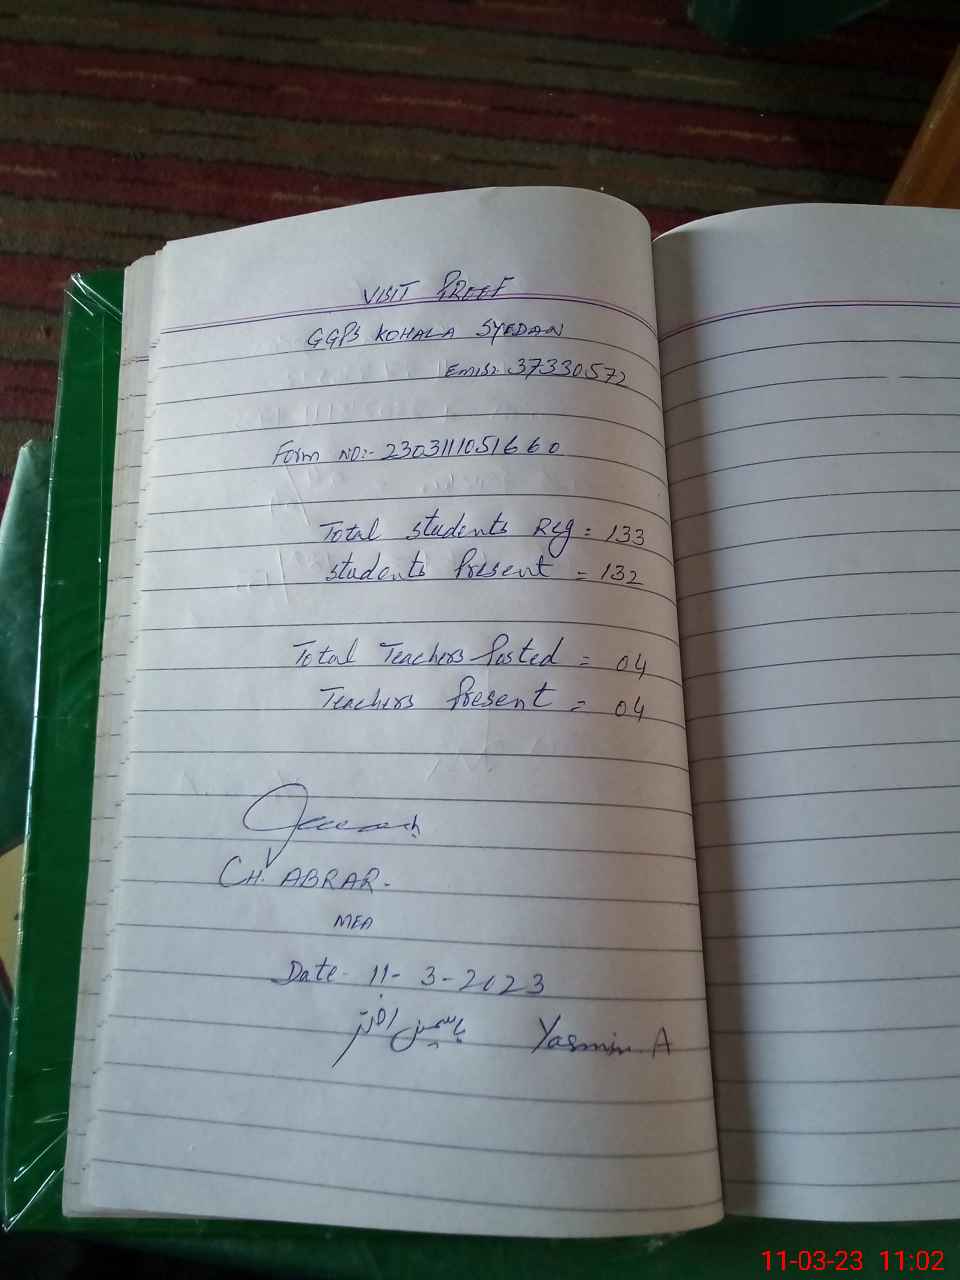 VISIT PROOF
GGPS KOHALA SYEDAN
Emis: 37330572
Form NO:- 2303111051660
Total students Reg = 133
students Present = 132
Total Teachers Posted = 04
Teachers Present = 04
CH. ABRAR.
MEA
Date - 11-3-2023
یاسمین اختر Yasmin A
11-03-23 11:02